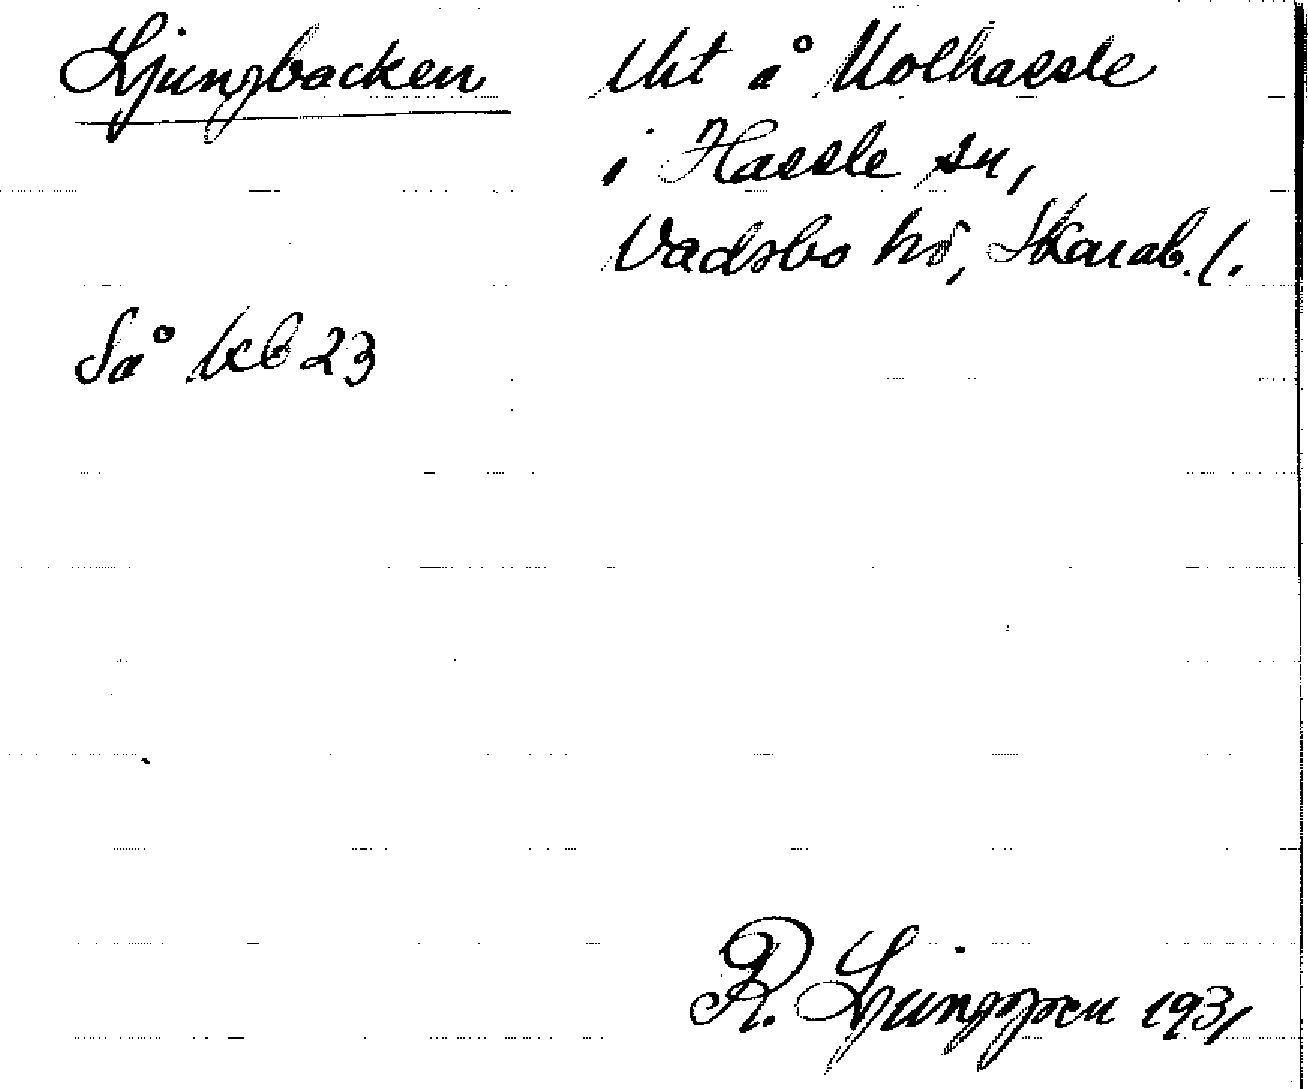 Ljungbacken
Uht å Nolhassle
i Hassle sn,
Vadsbo hd, Skarab. l.
Så kb 23
R. Ljunggren 1931